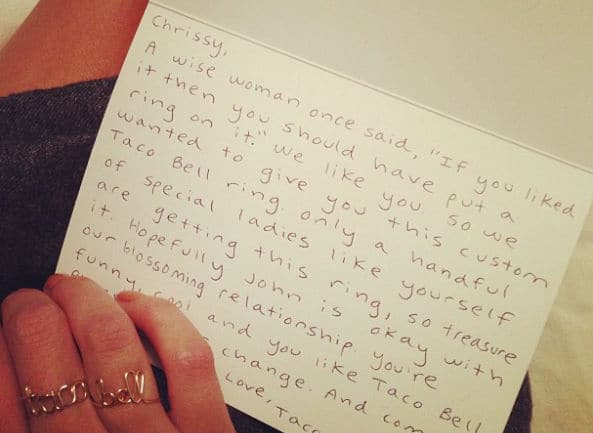 Chrissy,
A wise woman once said, "If you liked
it then you should have put a
ring on it." We like you. So we
wanted to give you this custom
Taco Bell ring. Only a handful
of special ladies like yourself
are getting this ring, so treasure
it. Hopefully John is okay with
our blossoming relationship. You're
funny, cool and you like Taco Bell
change. And
Love, Taco
taco bell